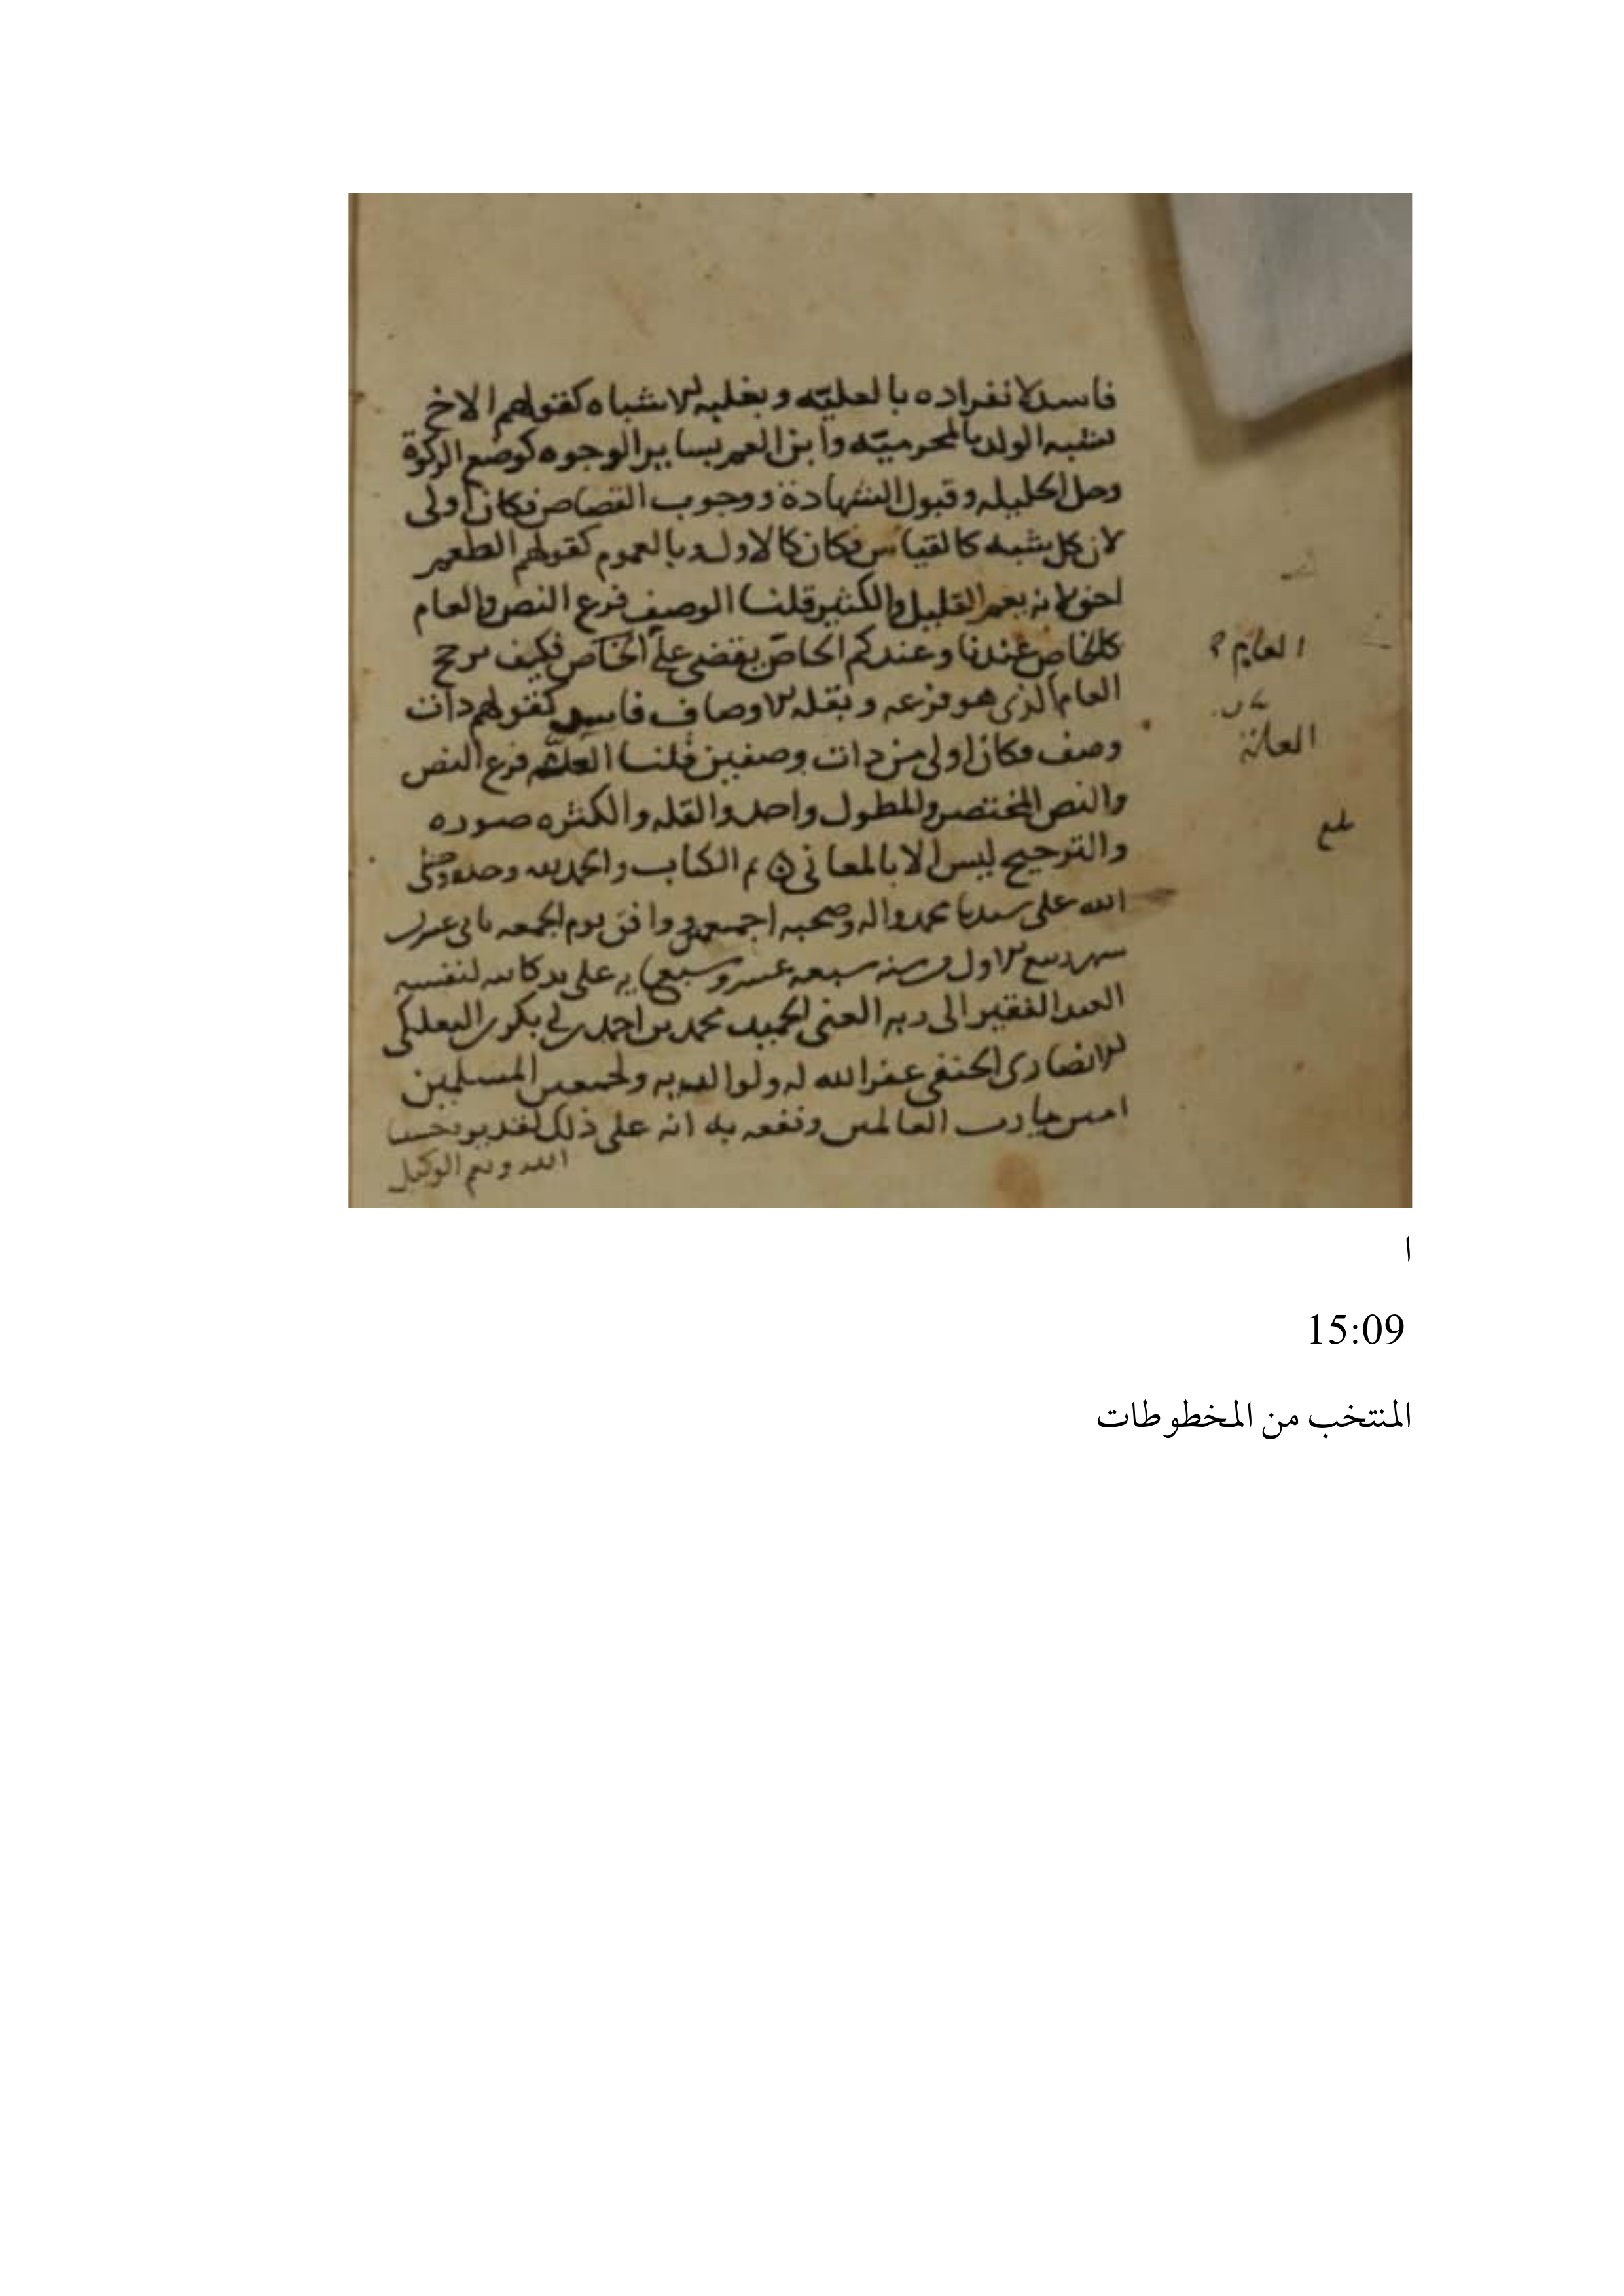 فاسد لانفراده بالعلية وبغلبة الاشباه كقولهم الاخ
يشبه الولد بالمحرمية وابن العم بساير الوجوه كوضع الزكوة
وحل الحليلة وقبول الشهادة ووجوب القصاص فكان اولى
لان كل شبه كالقياس فكان كالاول وبالعموم كقولهم الطعم
احق لانه يعم القليل والكثير قلنا الوصف فرع النص والعام
كالخاص عندنا وعندكم الخاص يقضي على فكيف يرجح
العام الذي هو فرعه وبقلة الاوصاف فاسد كقولهم ذات
وصف فكان اولى من ذات وصفين قلنا العلة فرع النص
والنص المختصر والمطول واحد والقلة والكثره صوره
والترجيح ليس الا بالمعاني تم الكتاب والحمد لله وحده وصلى
الله على سيدنا محمد واله وصحبه اجمعين ووافق يوم الجمعه ثاني عشر
شهر ربيع الاول سنه سبعه عشر وسبعمايه على يد كاتبه لنفسه
العبد الفقير الى ربه الغني الحميد محمد بن احمد بن البعلبكي
الانصاري الحنفي غفر الله له ولوالديه ولجميع المسلمين
امين يا رب العالمين ونفعه به انه على ذلك لقدير وحسبنا
الله ونعم الوكيل
بلغ
ا
15:09
المنتخب من المخطوطات